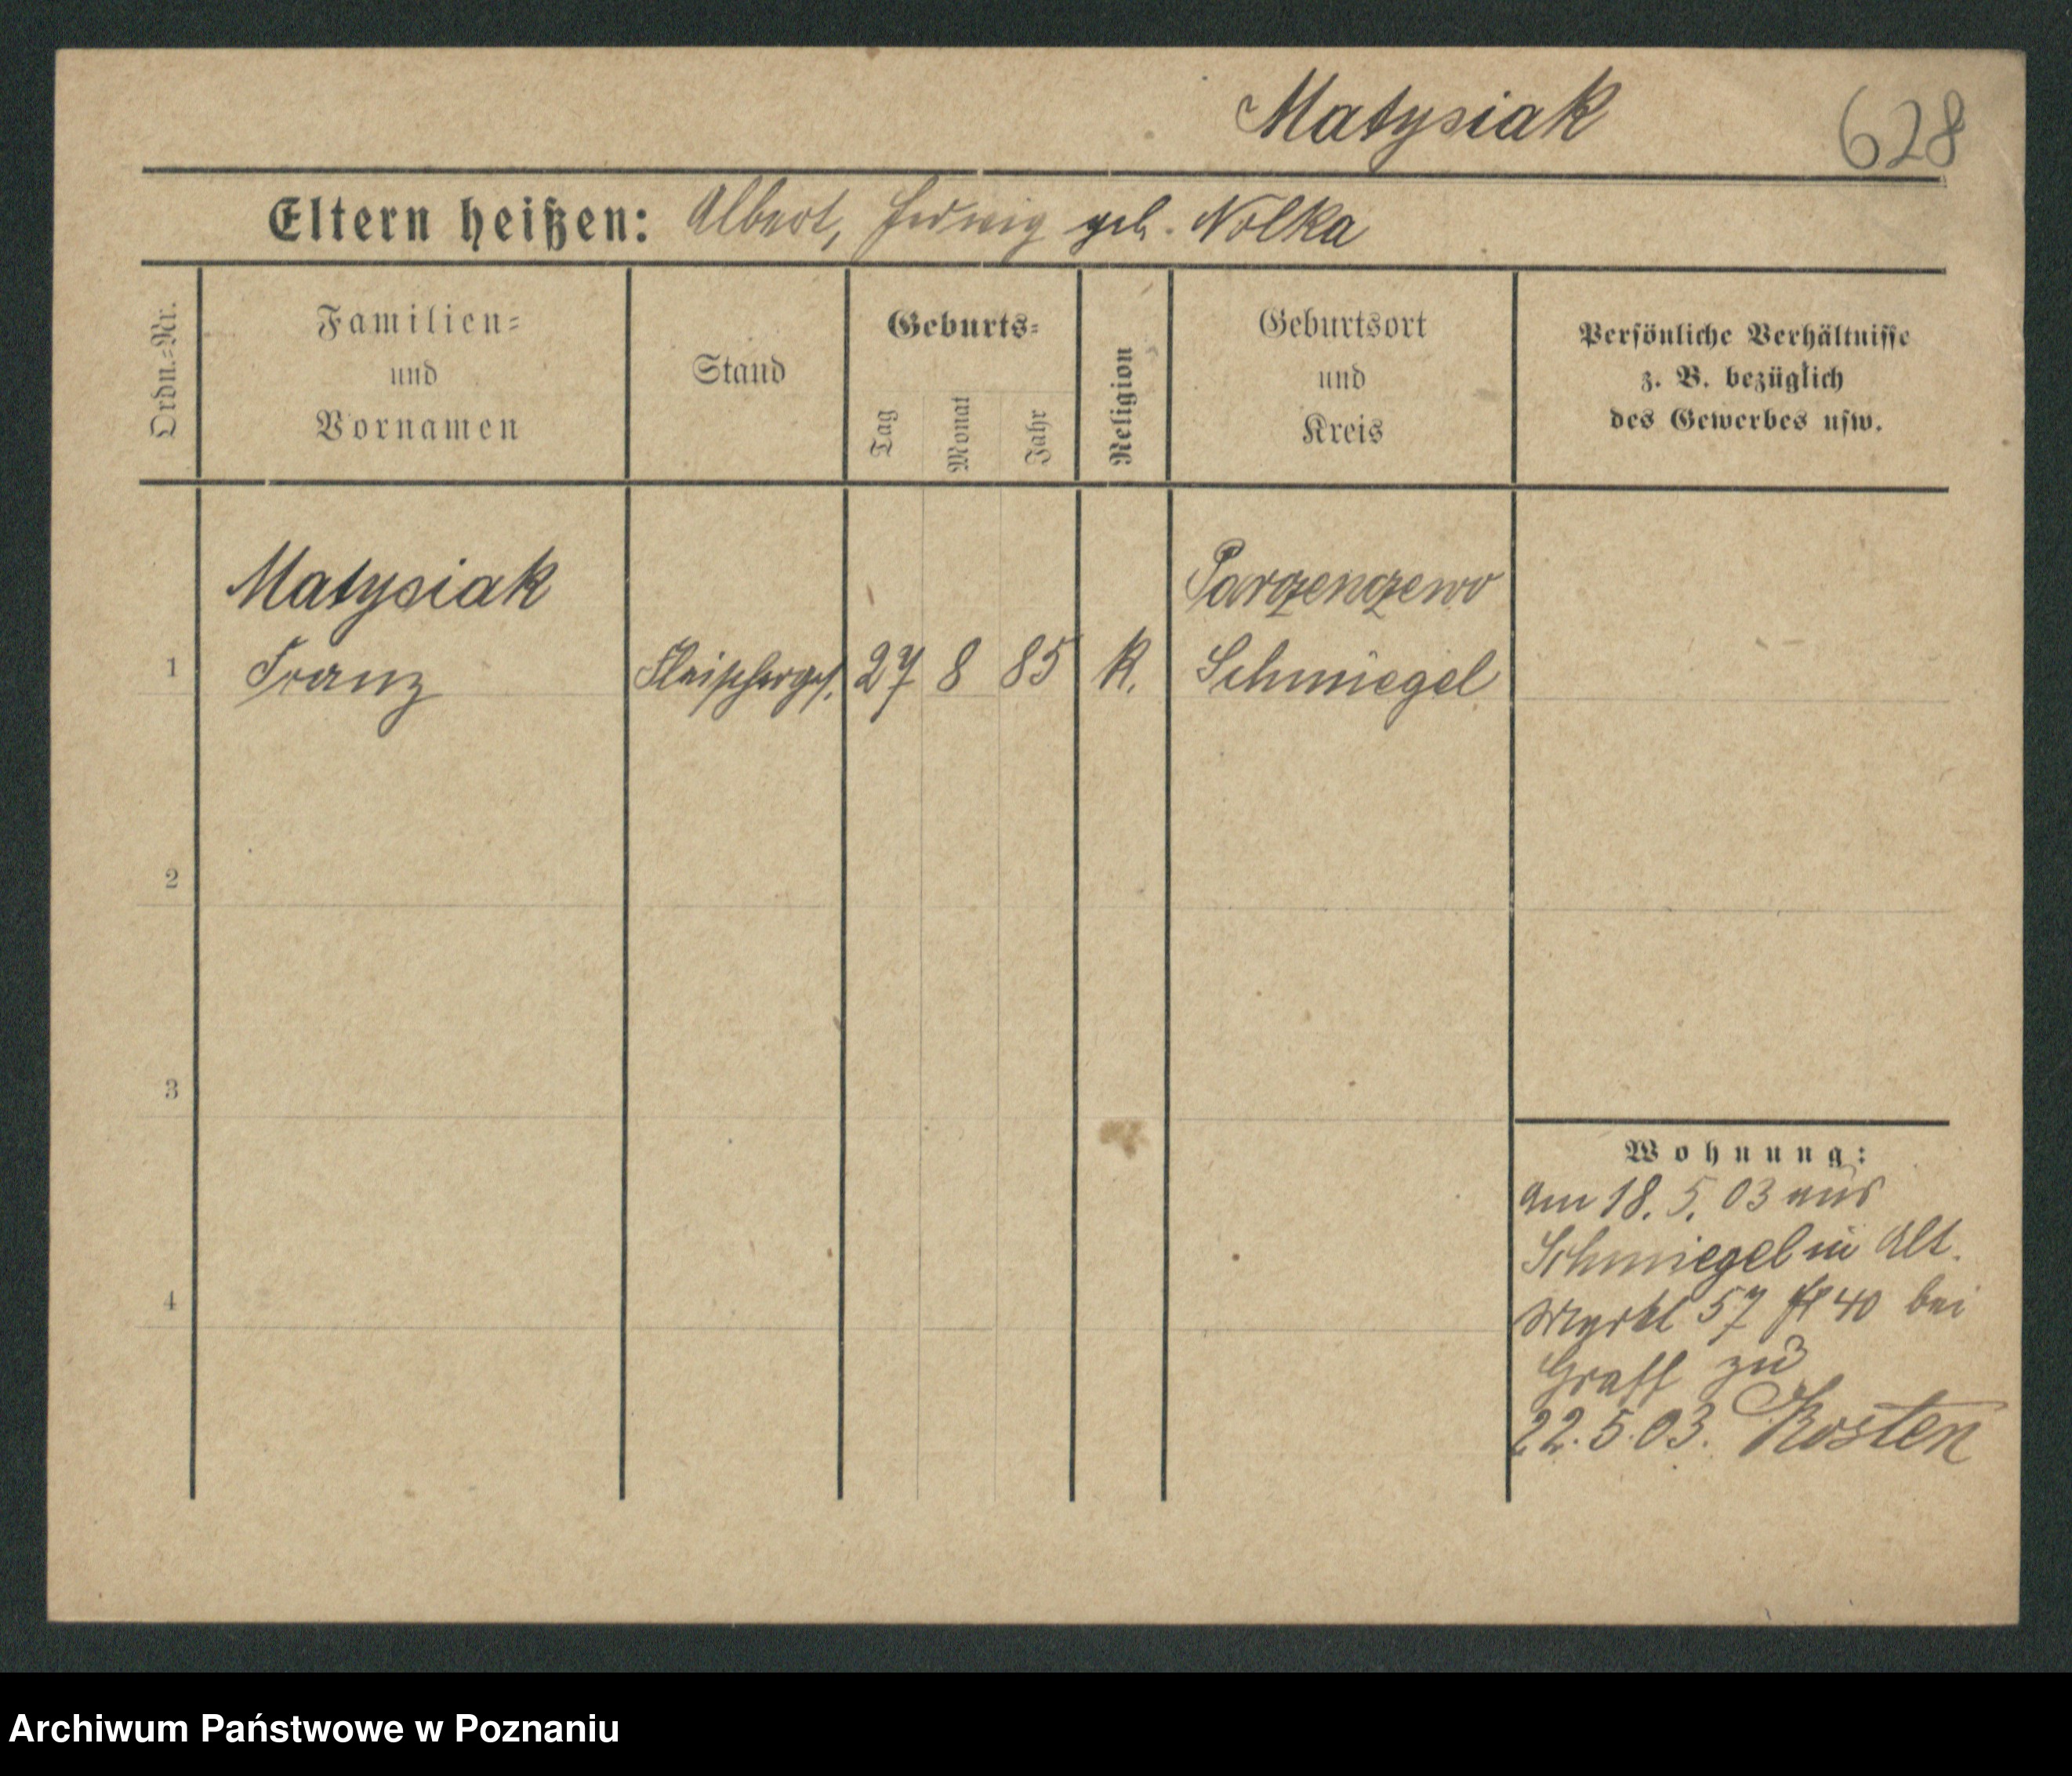 Matysiak
628
Eltern heißen: Albert, Hedwig geb. Nolka
Ordn.-Nr.
Familien-
und
Vornamen
Stand
Geburts-
Tag
Monat
Jahr
Religion
Geburtsort
und
Kreis
Persönliche Verhältnisse
z. B. bezüglich
des Gewerbes usw.
Matysiak
Parzenczewo
1 Franz Fleischerges. 27 8 85 k. Schmiegel
2
3
4
Wohnung:
am 18. 5. 03 aus
Schmiegel in Alt.
57 40 bei
Graff zu
22. 5. 03. Kosten
Archiwum Państwowe w Poznaniu